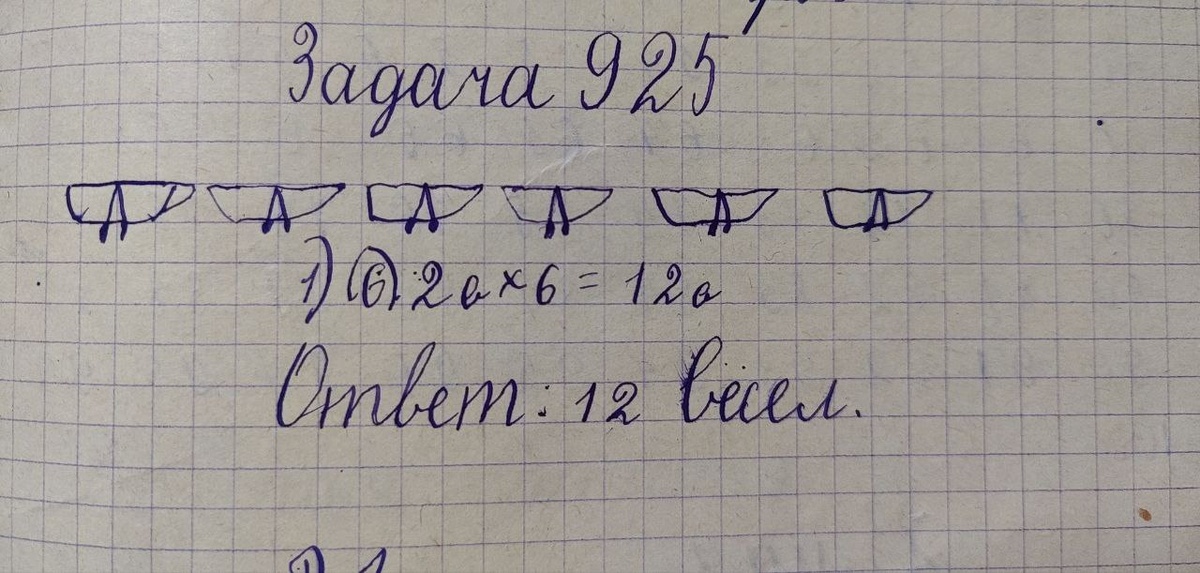 Задача 925
1) (6) 2 в × 6 = 12 в
Ответ: 12 вёсел.